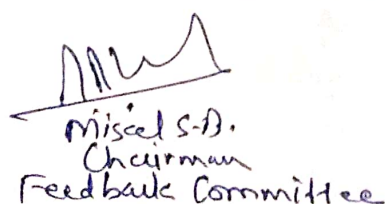 Misal S.B.
Chairman
Feedback Committee